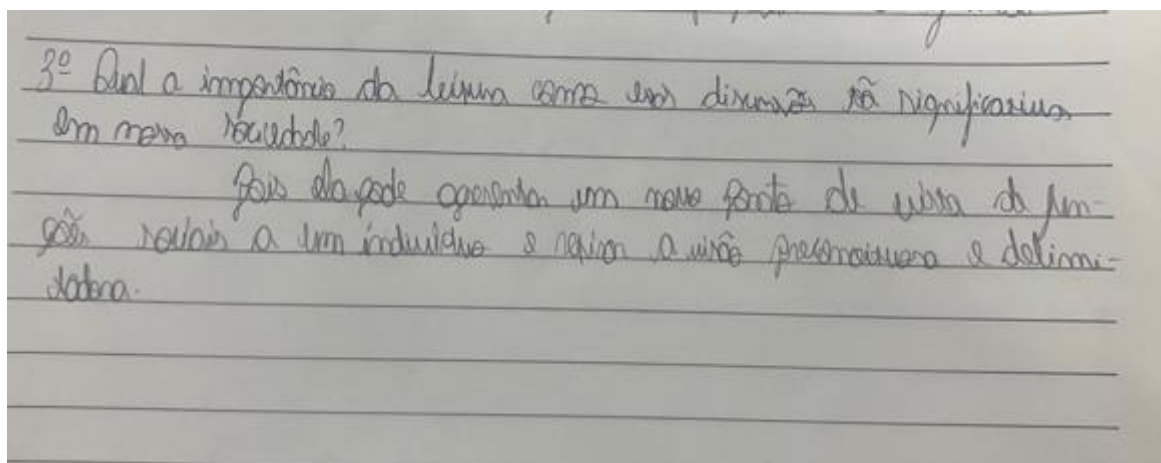 3º Qual a importância da leitura como essas discussões são significativas
em nossa sociedade?
Pois ela pode apresentar um novo ponto de vista de fun-
ções sociais a um indivíduo e a visão preconceituosa e delimi-
tadora.